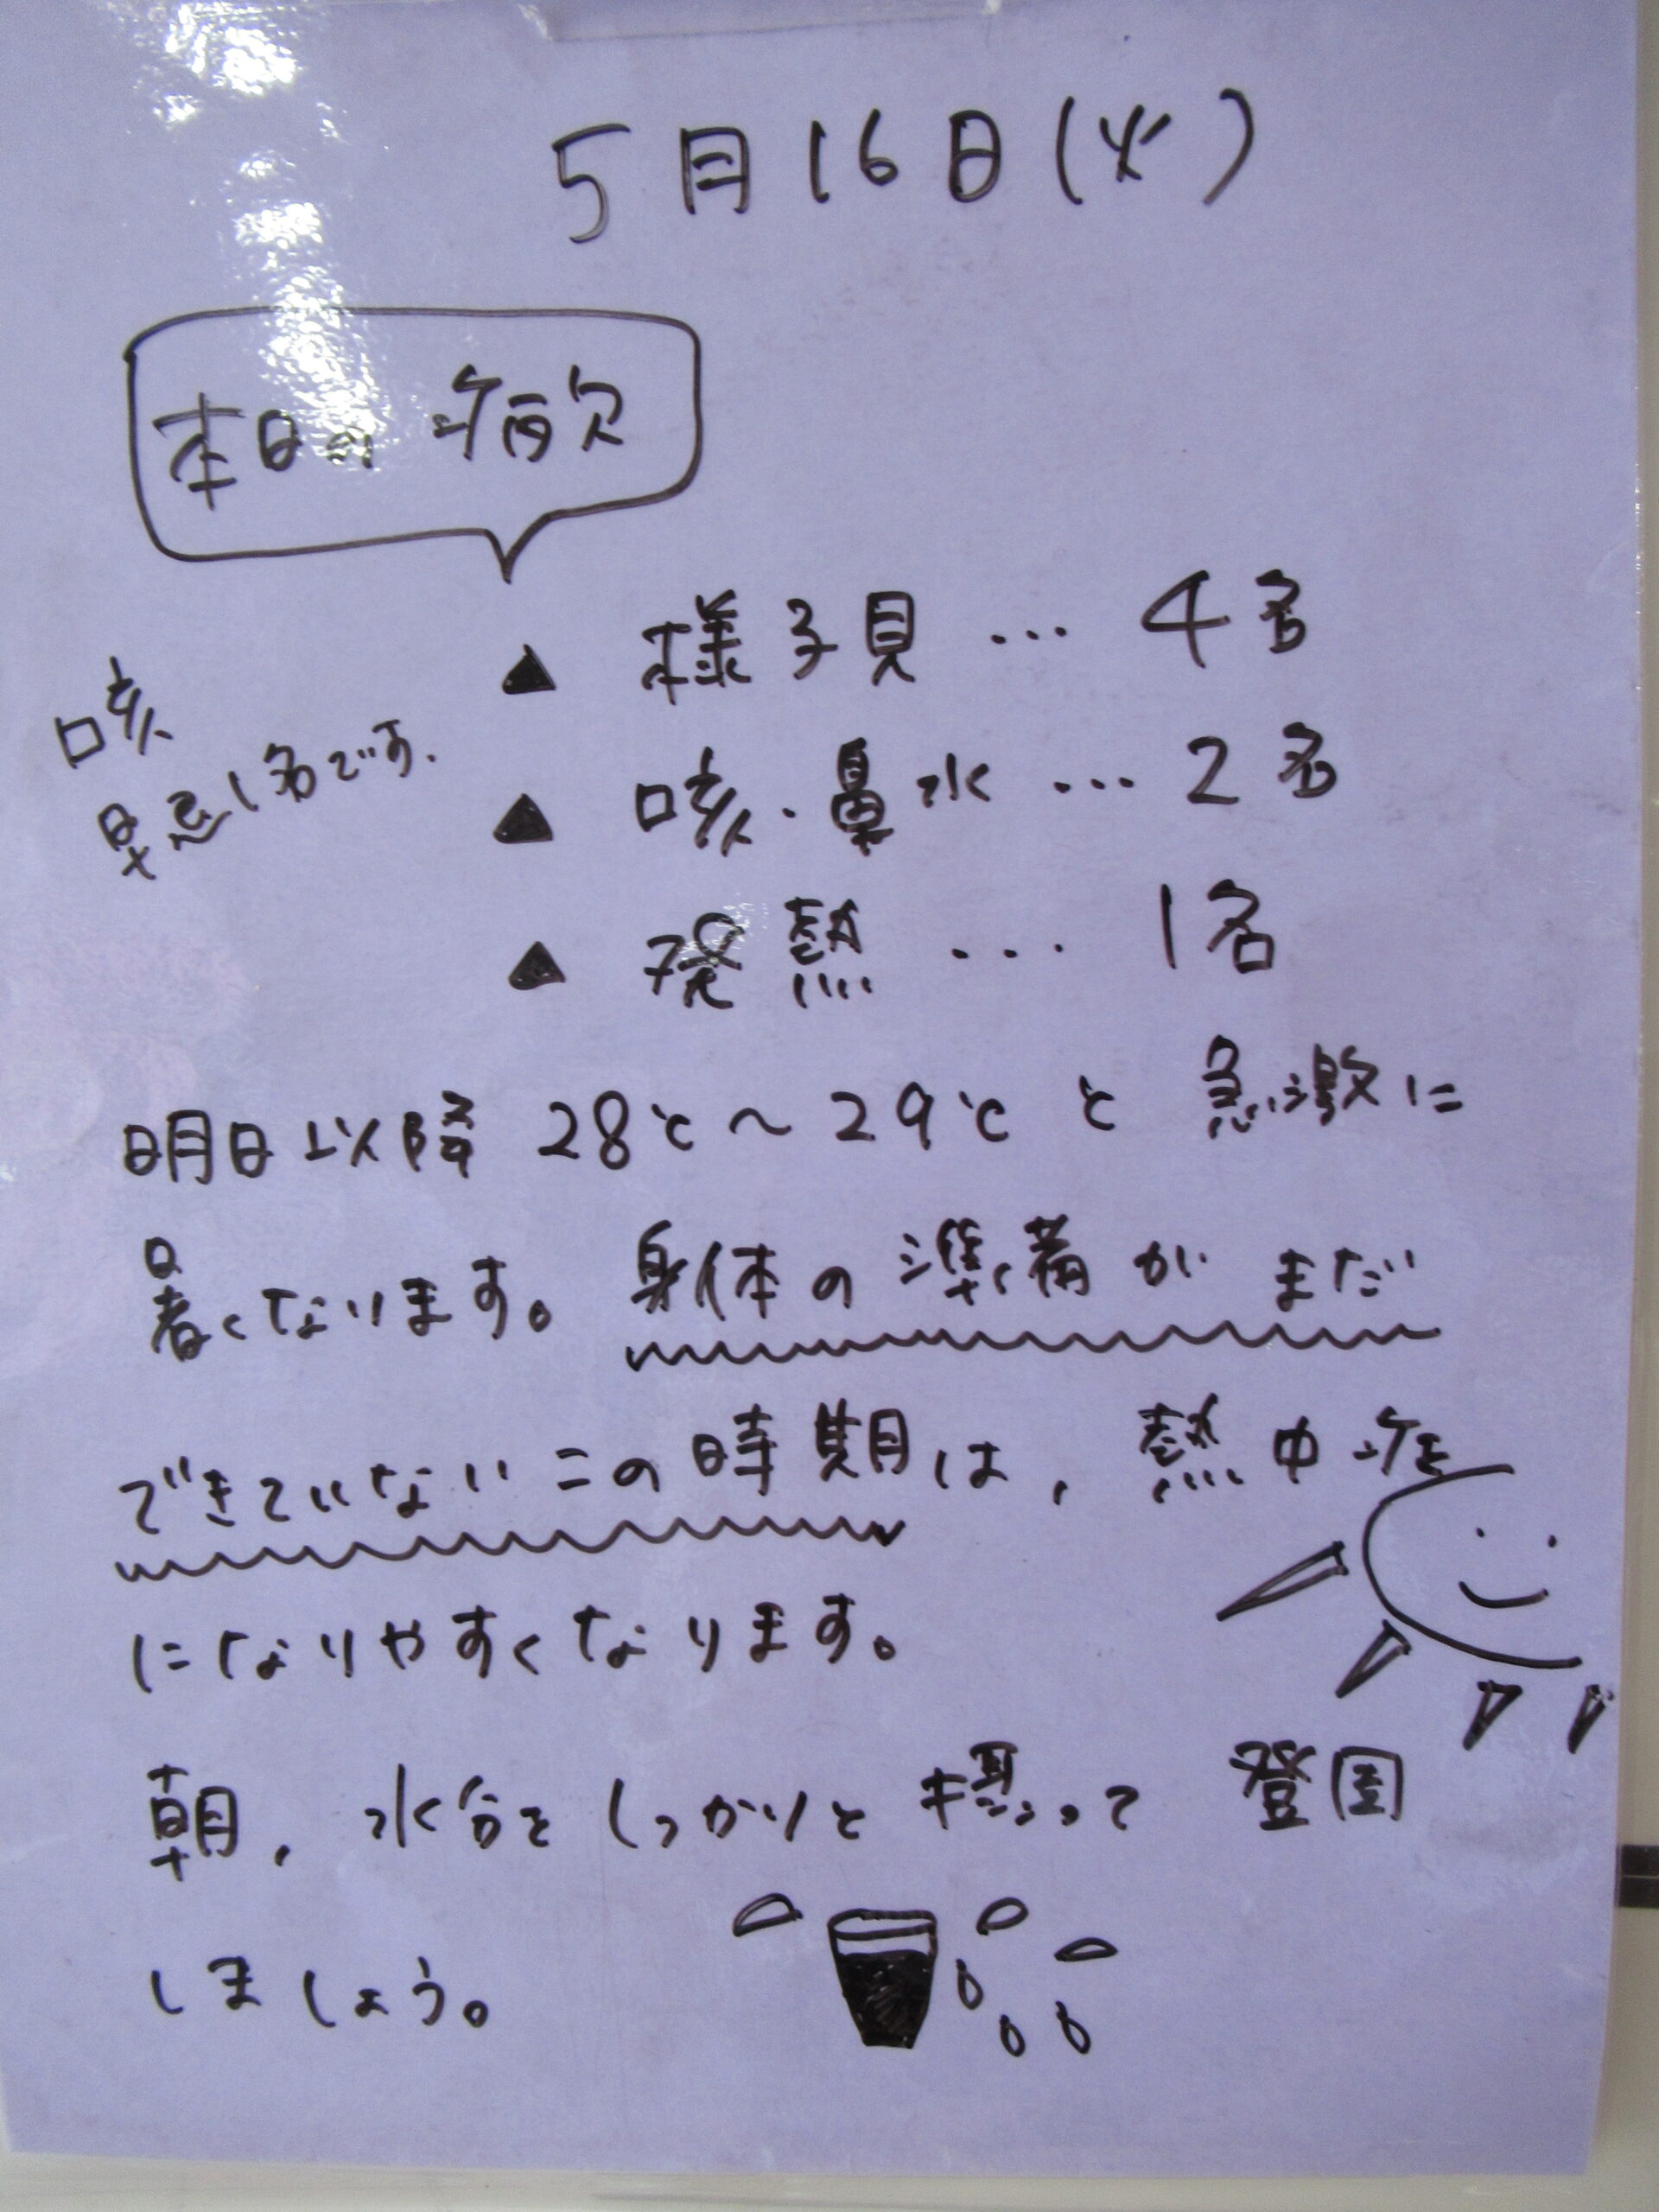 5月16日(火)
本日の病欠
▲ 様子見…4名
咳
早忌1名です.
▲ 咳・鼻水…2名
▲ 発熱…1名
明日以降 28℃～29℃と急激に
暑くなります。身体の準備がまだ
できていないこの時期は、熱中症
になりやすくなります。
朝、水分をしっかりと摂って 登園
しましょう。